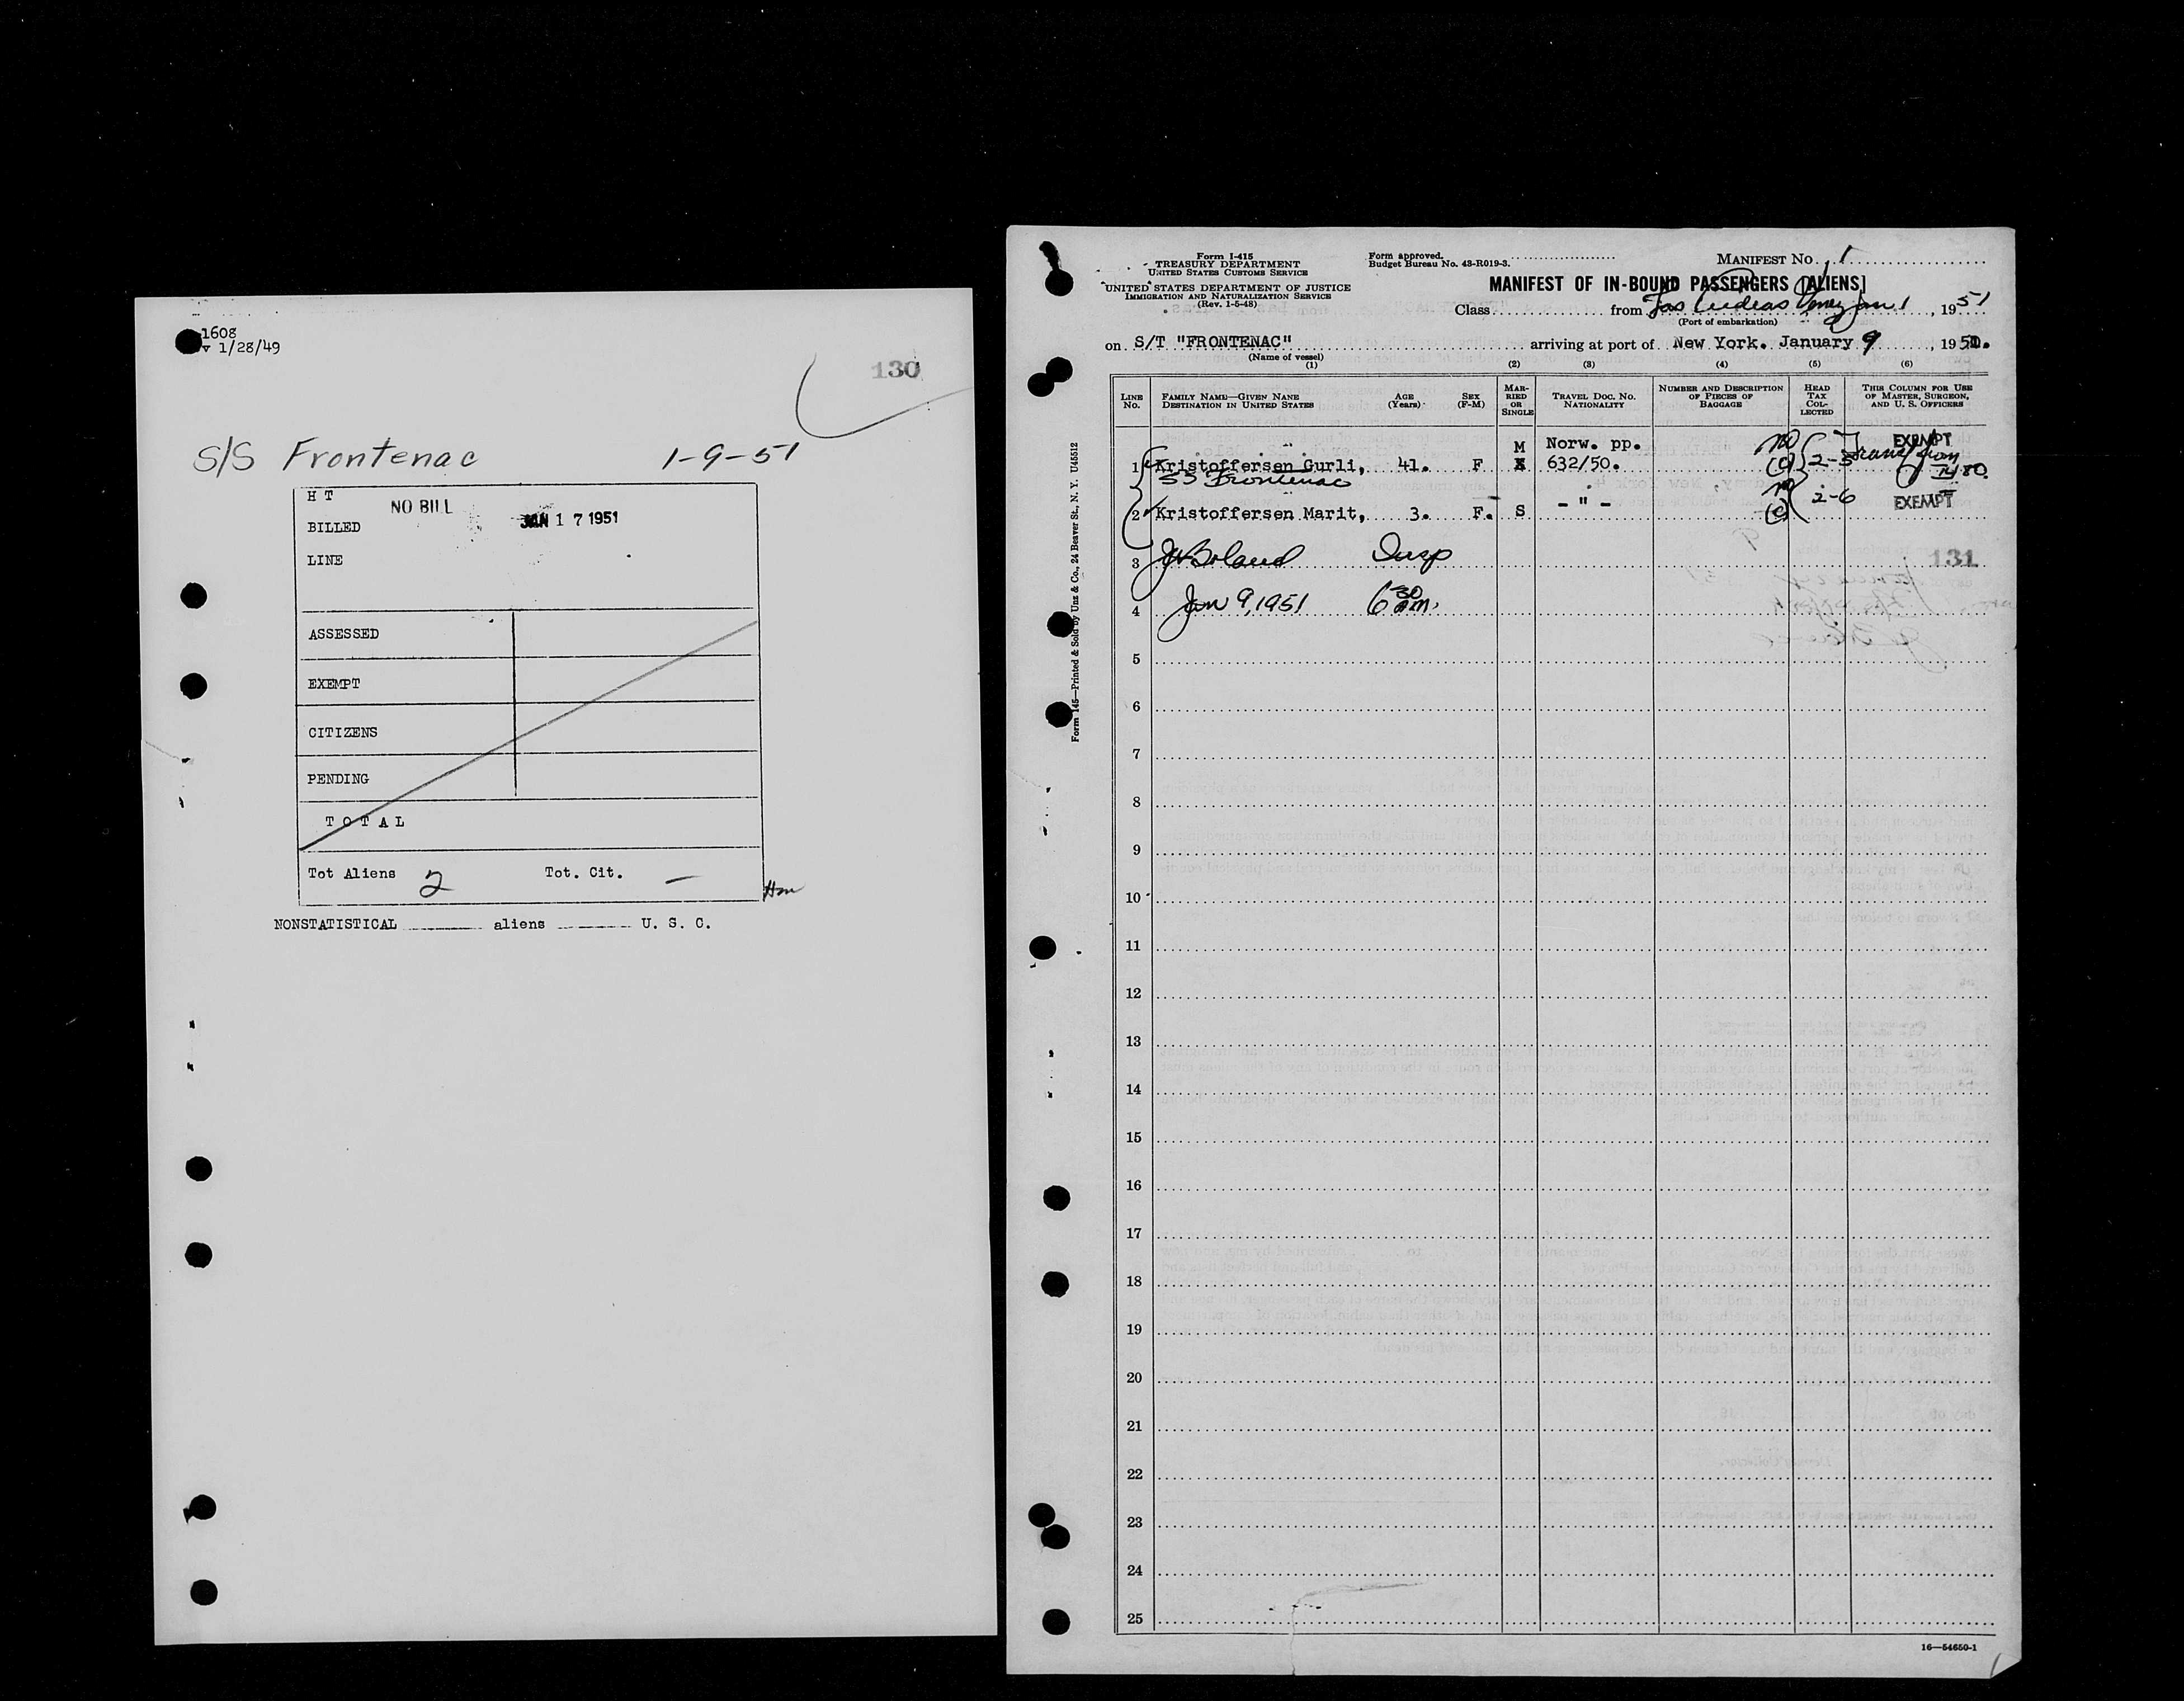 1608
v 1/28/49
130
S/S Frontenac 1-9-51
H T
NO BILL
BILLED JAN 17 1951
LINE
ASSESSED
EXEMPT
CITIZENS
PENDING
T O T A L
Tot Aliens 2 Tot. Cit. —
NONSTATISTICAL aliens U. S. C.
Form I-415
TREASURY DEPARTMENT
UNITED STATES CUSTOMS SERVICE
UNITED STATES DEPARTMENT OF JUSTICE
IMMIGRATION AND NATURALIZATION SERVICE
(Rev. 1-5-48)
Form approved.
Budget Bureau No. 43-R019-3.
MANIFEST No. 1
MANIFEST OF IN-BOUND PASSENGERS [ALIENS]
Class from Jan 1, 1951
(Port of embarkation)
on S/T "FRONTENAC" arriving at port of New York. January 9, 1951.
(Name of vessel)
(1) (2) (3) (4) (5) (6)
LINE No.
FAMILY NAME—GIVEN NAME
DESTINATION IN UNITED STATES
AGE (Years)
SEX (F-M)
MARRIED OR SINGLE
TRAVEL DOC. NO. NATIONALITY
NUMBER AND DESCRIPTION OF PIECES OF BAGGAGE
HEAD TAX COLLECTED
THIS COLUMN FOR USE OF MASTER, SURGEON, AND U. S. OFFICERS
M Norw. pp. EXEMPT
1 Kristoffersen Gurli, 41. F 632/50. 2-5
SS Frontenac
2 Kristoffersen Marit, 3. F. S - " - 2-6 EXEMPT
3 JW Boland Insp 131
4 Jan 9, 1951 6 30 am.
5
6
7
8
9
10
11
12
13
14
15
16
17
18
19
20
21
22
23
24
25
Form 145—Printed & Sold by Unz & Co., 24 Beaver St., N. Y. U45512
16—54650-1